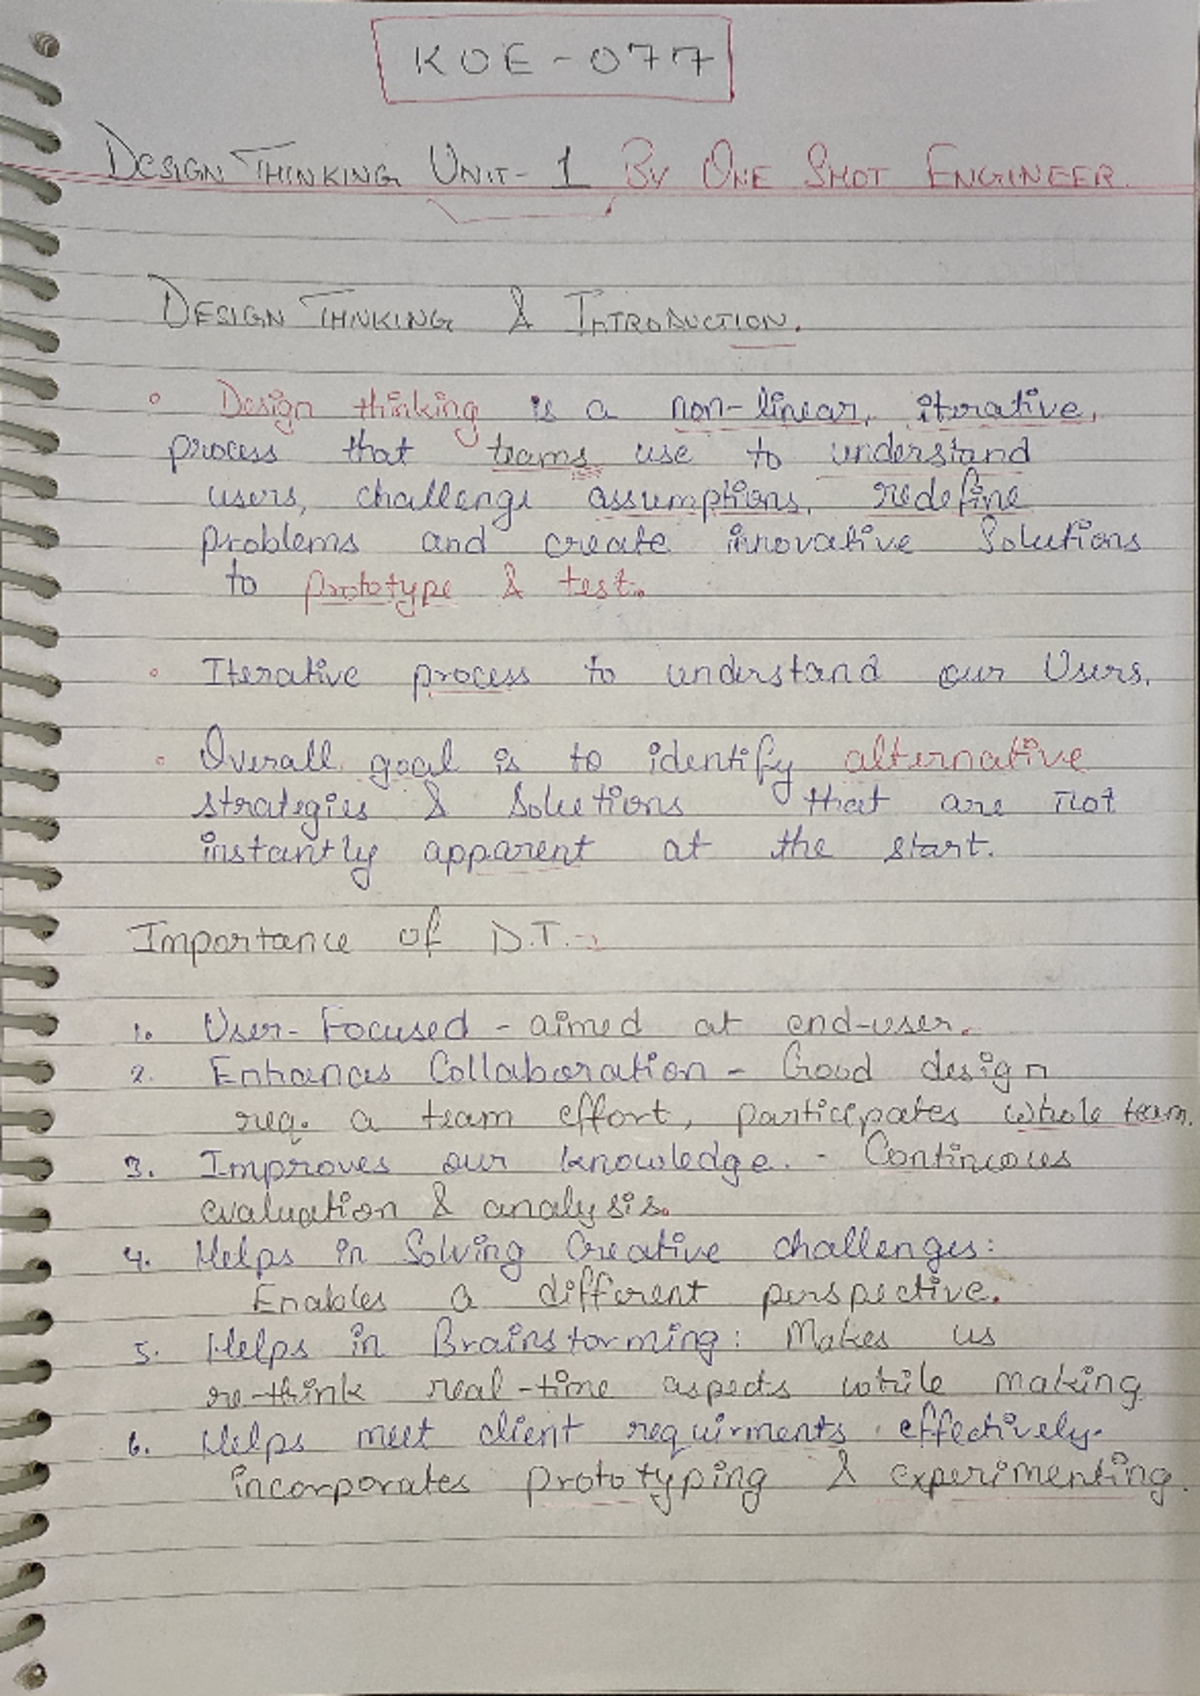 KOE-077
DESIGN THINKING UNIT-1 BY ONE SHOT ENGINEER.
DESIGN THINKING & INTRODUCTION.
• Design thinking is a non-linear, iterative,
process that teams use to understand
users, challenge assumptions, redefine
problems and create innovative Solutions
to prototype & test.
• Iterative process to understand our Users.
• Overall goal is to identify alternative
strategies & solutions that are not
instantly apparent at the start.
Importance of D.T.→
1. User-Focused - aimed at end-user.
2. Enhances Collaboration - Good design
req. a team effort, participates whole team.
3. Improves our knowledge. - Continuous
evaluation & analysis.
4. Helps in Solving Creative challenges:
Enables a different perspective.
5. Helps in Brainstorming: Makes us
re-think real-time aspects while making
6. Helps meet client requirments effectively-
incorporates prototyping & experimenting.